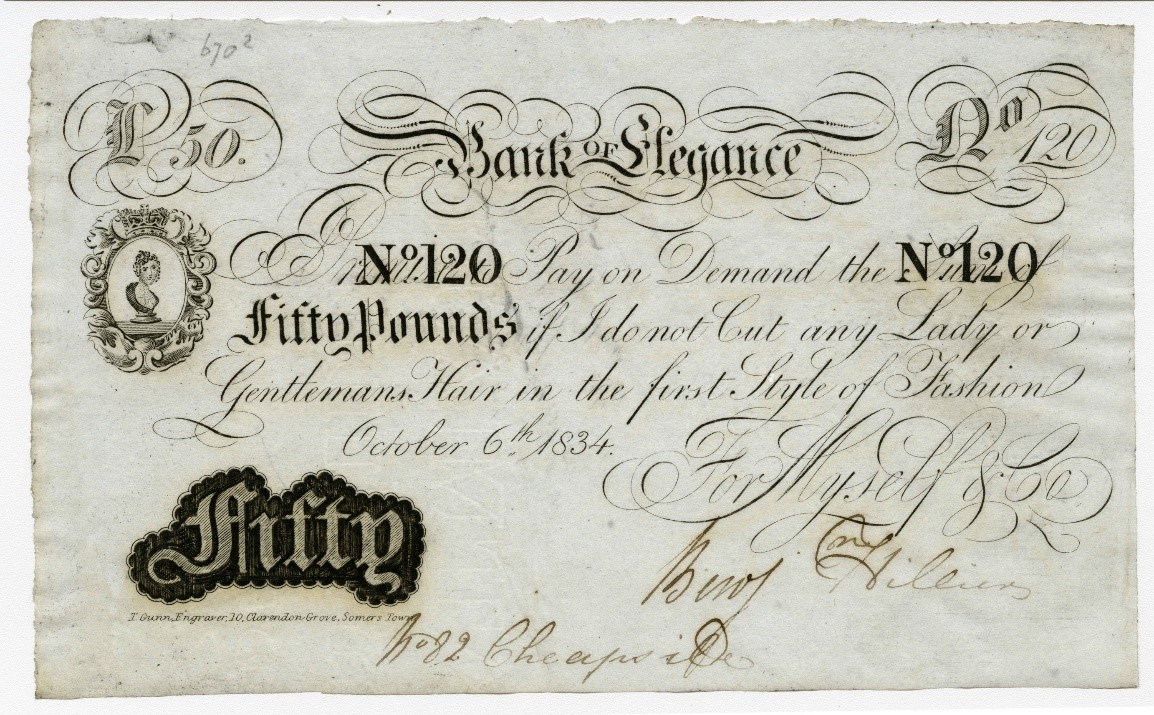 670²
£50. Bank OF Elegance No 120
I Promise to Pay on Demand the Sum of
No 120 No 120
Fifty Pounds if I do not Cut any Lady or
Gentlemans Hair in the first Style of Fashion
October 6th 1834.
For Myself & Co
Fifty
Benjn Hillier
T. Gunn, Engraver, 10, Clarendon Grove, Somers Town
No 82 Cheapside